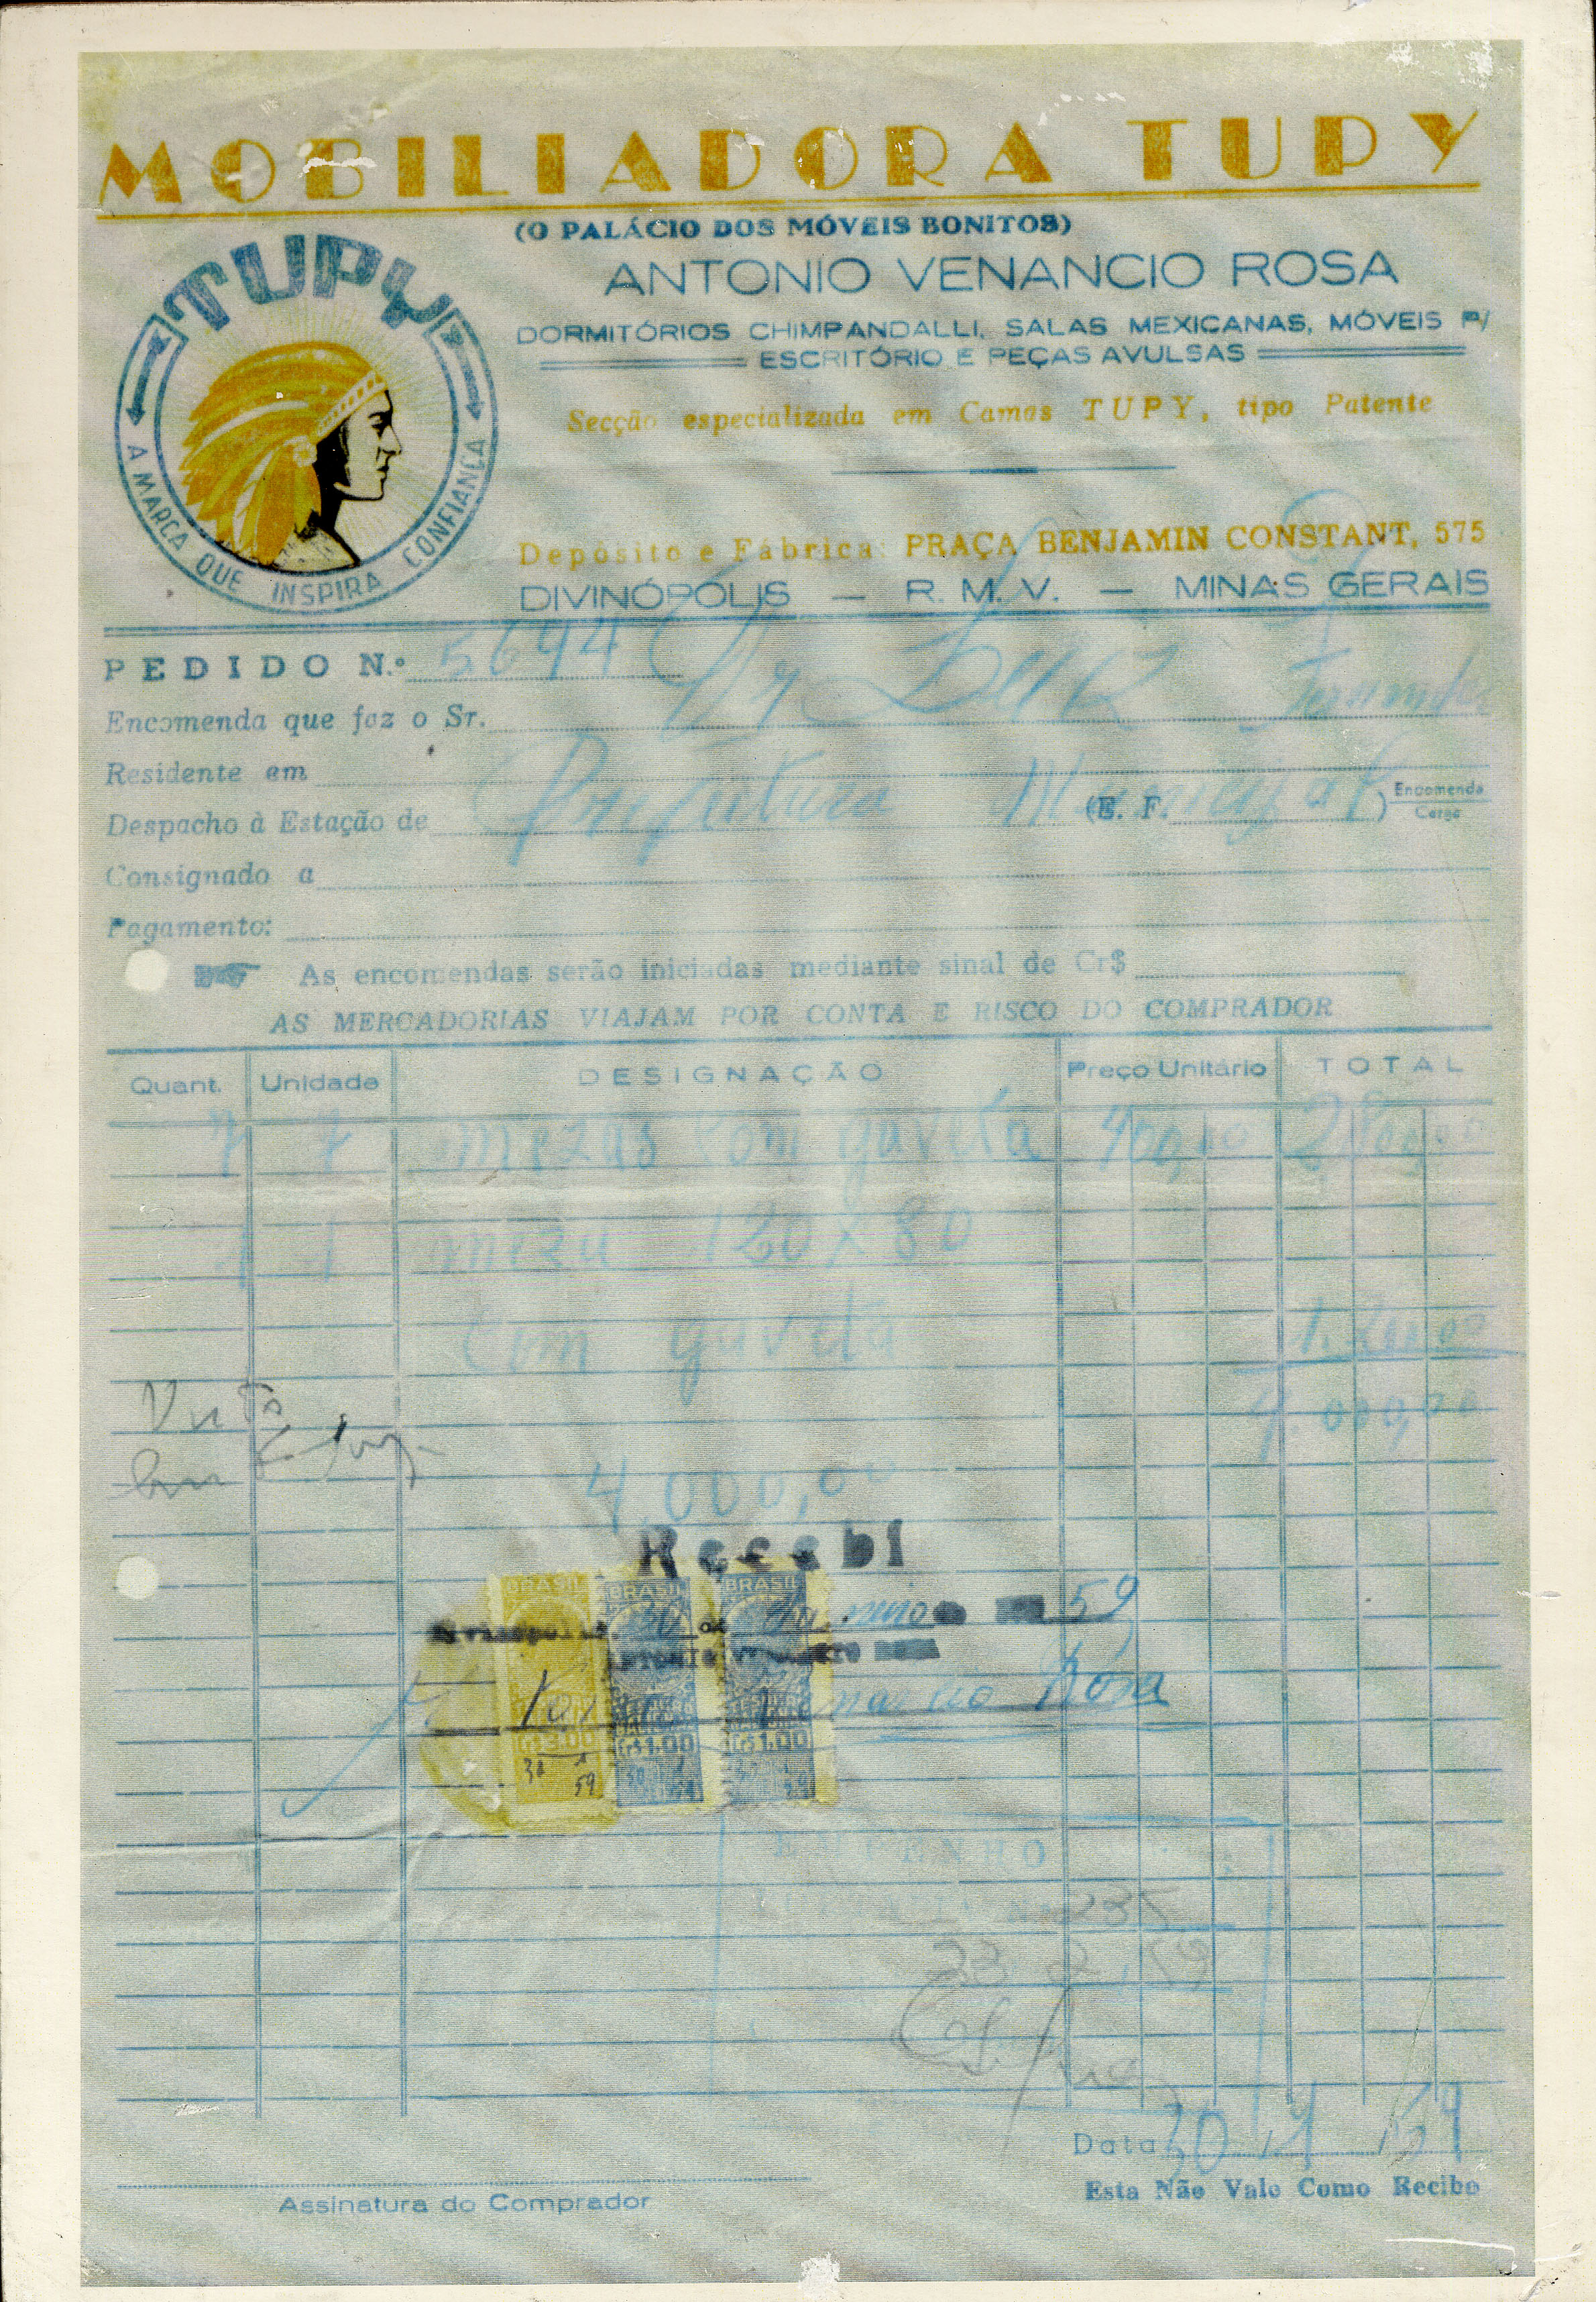 MOBILIADORA TUPY
(O PALÁCIO DOS MÓVEIS BONITOS)
ANTONIO VENANCIO ROSA
DORMITÓRIOS CHIMPANDALLI, SALAS MEXICANAS, MÓVEIS P/
ESCRITÓRIO E PEÇAS AVULSAS
Secção especializada em Camas TUPY, tipo Patente
TUPY
A MARCA QUE INSPIRA CONFIANÇA
Depósito e Fábrica: PRAÇA BENJAMIN CONSTANT, 575
DIVINÓPOLIS — R. M. V. — MINAS GERAIS
PEDIDO N.º 5694
Encomenda que faz o Sr.
Residente em
Prefeitura Municipal
Despacho à Estação de (E. F. ) Encomenda
Carga
Consignado a
Pagamento:
As encomendas serão iniciadas mediante sinal de Cr$
AS MERCADORIAS VIAJAM POR CONTA E RISCO DO COMPRADOR
Quant. Unidade DESIGNAÇÃO Preço Unitário TOTAL
7 7 mezas com gaveta 400,00 2.800,00
1 1 meza 120 x 80
com gaveta 1.200,00
4.000,00
4.000,00
Recebi
BRASIL BRASIL BRASIL
Divinópolis, 30 de 59
ANTONIO VENANCIO ROSA
Venancio Rosa
Cr$3.00 Cr$1.00 Cr$1.00
30 1 59
EMPENHO
235
Data 30 1 59
Esta Não Vale Como Recibo
Assinatura do Comprador